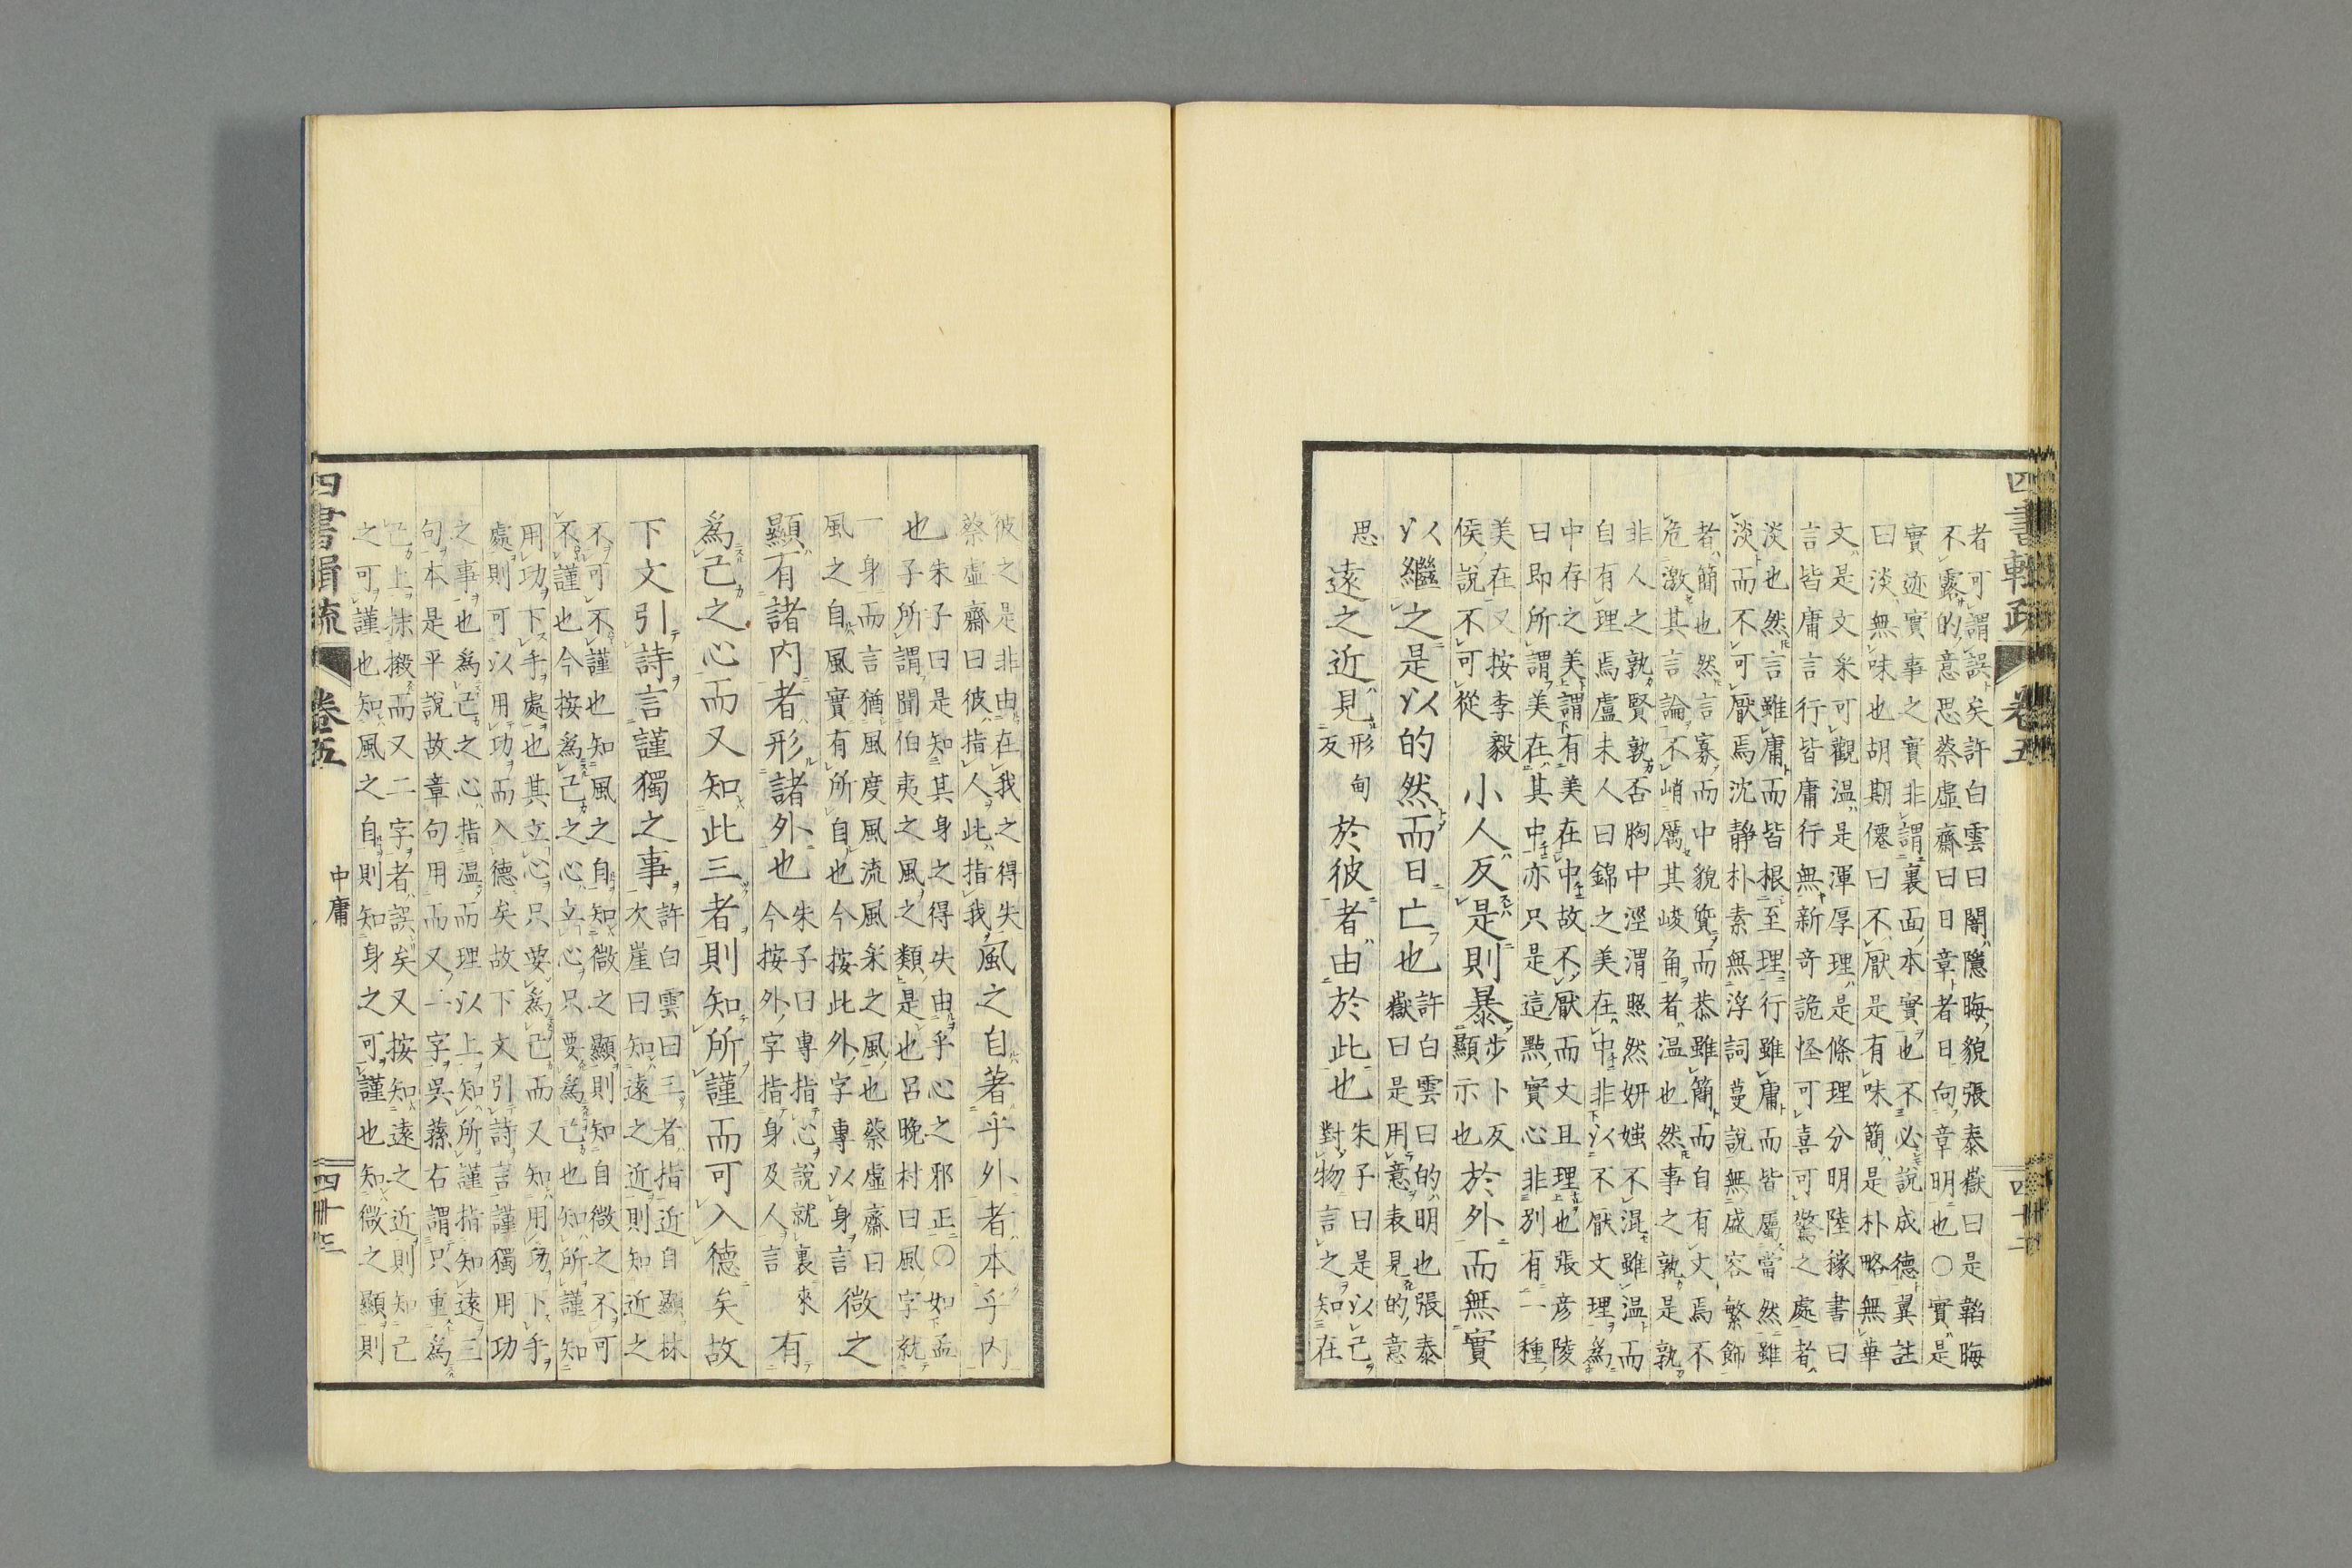 四書輯疏
卷五
四十二
者可謂誤矣許白雲曰闇隱晦貌張泰嶽曰是韜晦
不露的意思蔡虛齋曰日章者日向章明也〇實是
實迹實事之實非謂裏面本實也不必說成德翼註
曰淡無味也胡期僊曰不厭是有味簡是朴略無華
文是文采可觀温是渾厚理是條理分明陸稼書曰
言皆庸言行皆庸行無新奇詭怪可喜可驚之處者
淡也然言雖庸而皆根至理行雖庸而皆屬當然雖
淡而不可厭焉沈静朴素無浮詞蔓說無盛容繁飾
者簡也然言寡而中貌質而恭雖簡而自有文焉不
危激其言論不峭厲其峻角者温也然事之孰是孰
非人之孰賢孰否胸中涇渭照然妍媸不混雖温而
自有理焉盧未人曰錦之美在中非以不厭文理爲
中存之美謂有美在中故不厭而文且理也張彦陵
曰即所謂美在其中亦只是這點實心非別有一種
美在又按李毅
侯說不可從
小人反是則暴步卜反
顯示也
於外而無實
以繼之是以的然而日亡也許白雲曰的明也張泰
嶽曰是用意表見的意
思
遠之近見形甸
反
於彼者由於此也朱子曰是以己
對物言之知在
彼之是非由在我之得失
蔡虛齋曰彼指人此指我
風之自著乎外者本乎内
也朱子曰是知其身之得失由乎心之邪正〇如孟
子所謂聞伯夷之風之類是也呂晚村曰風字就
一身而言猶風度風流風采之風也蔡虛齋曰
風之自風實有所自也今按此外字專以身言
微之
顯有諸内者形諸外也朱子曰專指心說就裏來
今按外字指身及人言
有
爲己之心而又知此三者則知所謹而可入德矣故
下文引詩言謹獨之事許白雲曰三者指近自顯林
次崖曰知遠之近則知近之
不可不謹也知風之自知微之顯則知自微之不可
不謹也今按爲己之心立心只要爲己也知所謹知
用功下手處也其立心只要爲己而又知用功下手
處則可以用功而入德矣故下文引詩言謹獨用功
之事也爲己之心指温而理以上知所謹指知遠三
句本是平說故章句用而又一字吳蓀右謂只重爲
己上抹搬而又二字者誤矣又按知遠之近則知己
之可謹也知風之自則知身之可謹也知微之顯則
四書輯疏
卷五
中庸
四十三